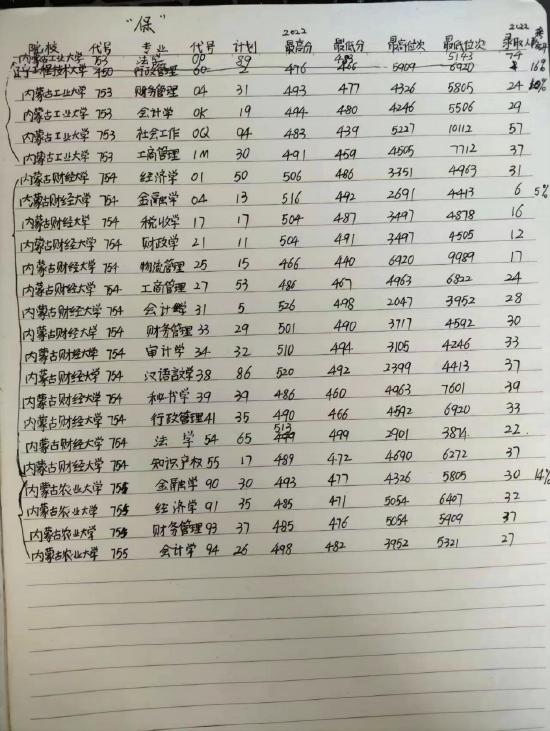 "保"
院校 代号 专业 代号 计划 2022最高分 最低分 最高位次 最低位次 2022录取人
内蒙古工业大学 753 法 0P 89 483 5143 74
辽宁工程技术大学 450 行政管理 60 2 476 466 5909 6920 16%
内蒙古工业大学 753 财务管理 04 31 493 477 4326 5805 24
内蒙古工业大学 753 会计学 0K 19 494 480 4246 5506 29
内蒙古工业大学 753 社会工作 0Q 94 483 439 5227 10112 57
内蒙古工业大学 753 工商管理 1M 30 491 459 4505 7712 37
内蒙古财经大学 754 经济学 01 50 506 486 3351 4963 31
内蒙古财经大学 754 金融学 04 13 516 492 2691 4413 6 5%
内蒙古财经大学 754 税收学 17 17 504 487 3497 4878 16
内蒙古财经大学 754 财政学 21 11 504 491 3497 4505 12
内蒙古财经大学 754 物流管理 25 15 466 440 6920 9989 17
内蒙古财经大学 754 工商管理 27 53 486 467 4963 6822 24
内蒙古财经大学 754 会计学 31 5 526 498 2047 3952 28
内蒙古财经大学 754 财务管理 33 29 501 490 3717 4592 30
内蒙古财经大学 754 审计学 34 32 510 494 3105 4246 33
内蒙古财经大学 754 汉语言文学 38 86 520 492 2399 4413 37
内蒙古财经大学 754 秘书学 39 39 486 460 4963 7601 39
内蒙古财经大学 754 行政管理 41 35 490 466 4592 6920 33
内蒙古财经大学 754 法学 54 65 513 499 2901 3874 22
内蒙古财经大学 754 知识产权 55 17 489 472 4690 6272 37
内蒙古农业大学 755 金融学 90 30 493 477 4326 5805 30 14%
内蒙古农业大学 755 经济学 91 35 485 471 5054 6407 32
内蒙古农业大学 755 财务管理 93 37 485 476 5054 5909 37
内蒙古农业大学 755 会计学 94 26 498 482 3952 5321 27